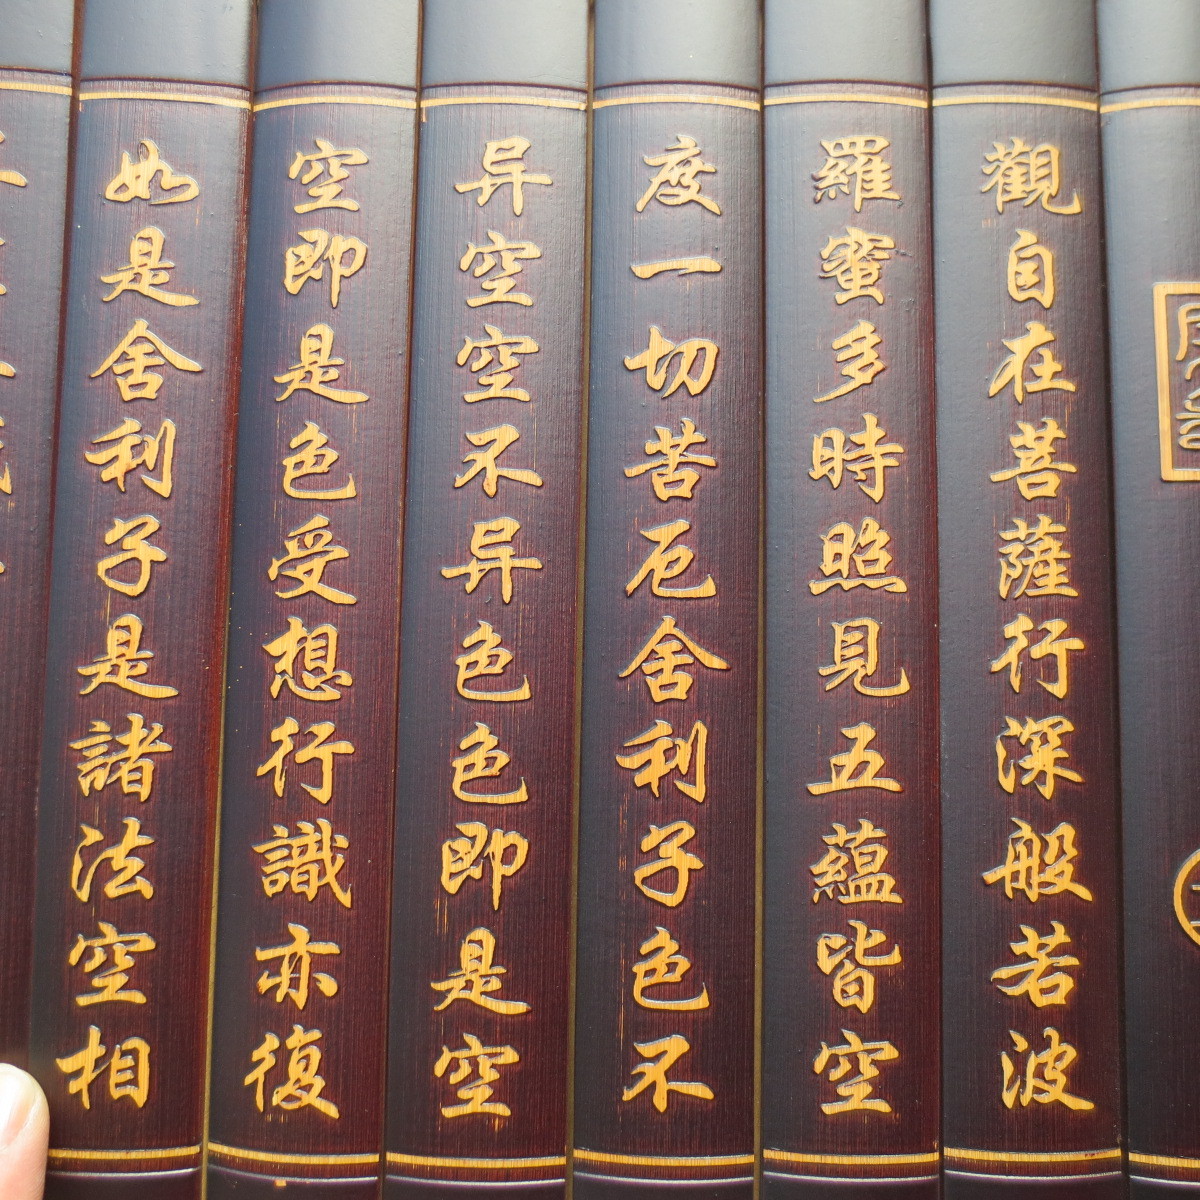 觀自在菩薩行深般若波
羅蜜多時照見五蘊皆空
度一切苦厄舍利子色不
异空空不异色色即是空
空即是色受想行識亦復
如是舍利子是諸法空相